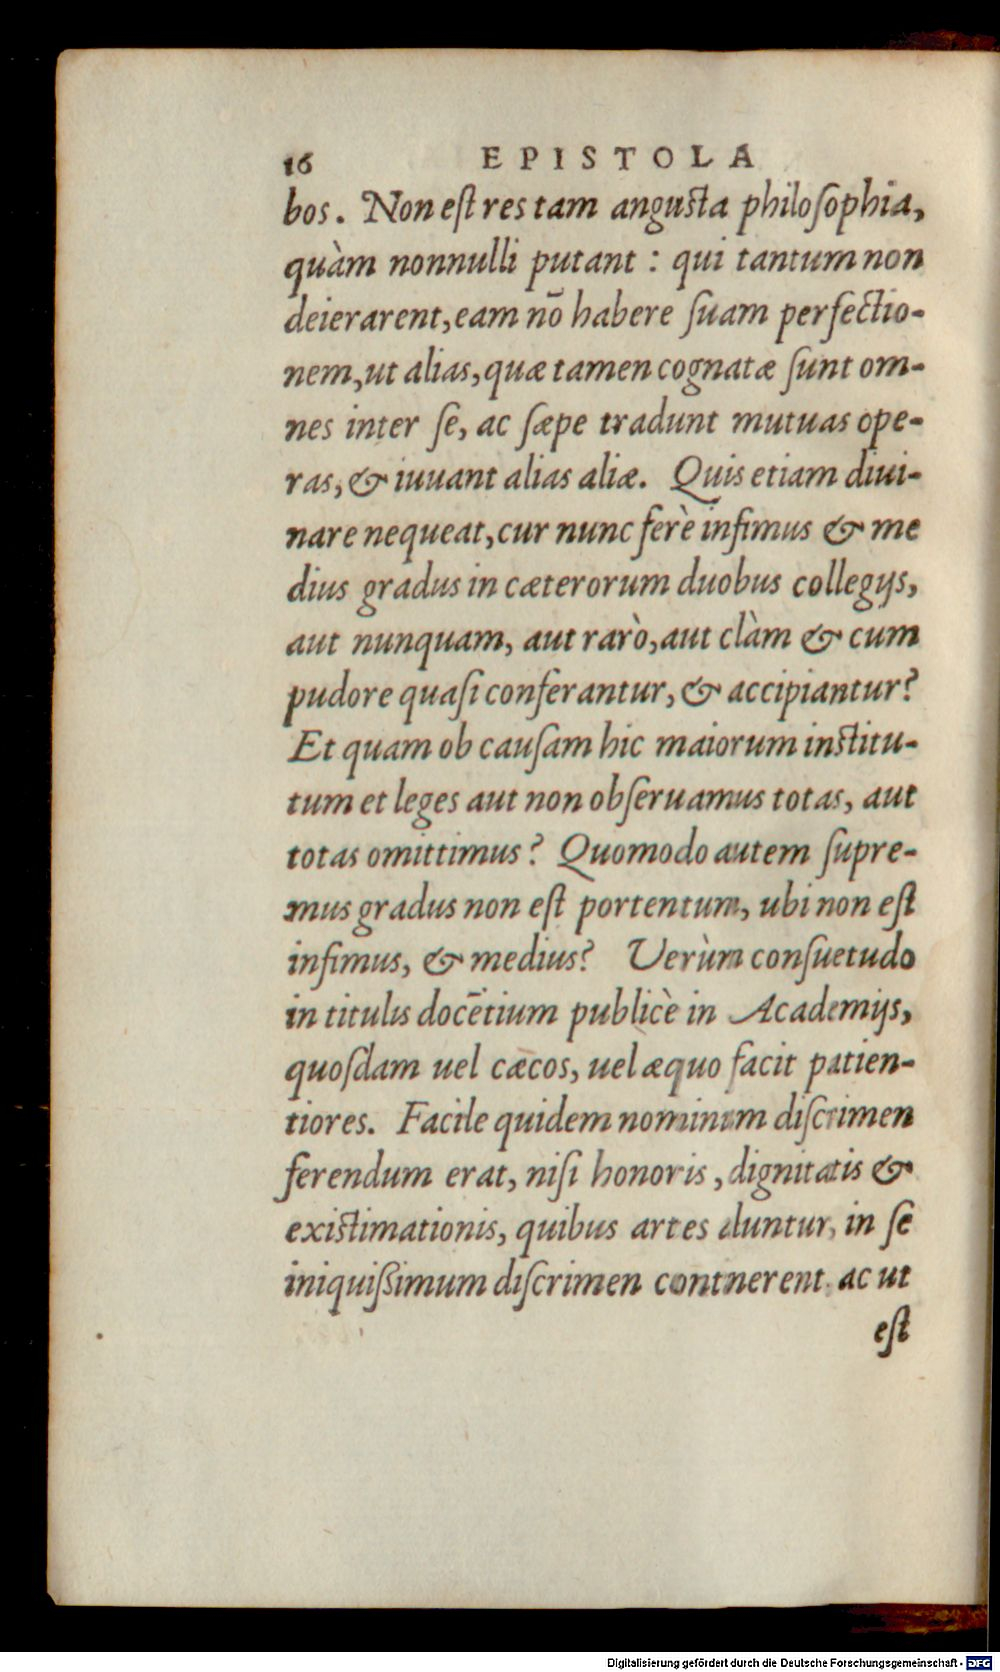 16 EPISTOLA
bos. Non est res tam angusta philosophia,
quàm nonnulli putant : qui tantum non
deierarent, eam nō habere suam perfectio-
nem, ut alias, quæ tamen cognatæ sunt om-
nes inter se, ac sæpe tradunt mutuas ope-
ras, & iuuant alias aliæ. Quis etiam diui-
nare nequeat, cur nunc ferè infimus & me
dius gradus in cæterorum duobus collegijs,
aut nunquam, aut rarò, aut clàm & cum
pudore quasi conferantur, & accipiantur?
Et quam ob causam hic maiorum institu-
tum et leges aut non obseruamus totas, aut
totas omittimus? Quomodo autem supre-
mus gradus non est portentum, ubi non est
infimus, & medius? Verùm consuetudo
in titulis docētium publicè in Academijs,
quosdam uel cæcos, uel æquo facit patien-
tiores. Facile quidem nominum discrimen
ferendum erat, nisi honoris, dignitatis &
existimationis, quibus artes aluntur, in se
iniquißimum discrimen continerent. ac ut
est
Digitalisierung gefördert durch die Deutsche Forschungsgemeinschaft - DFG